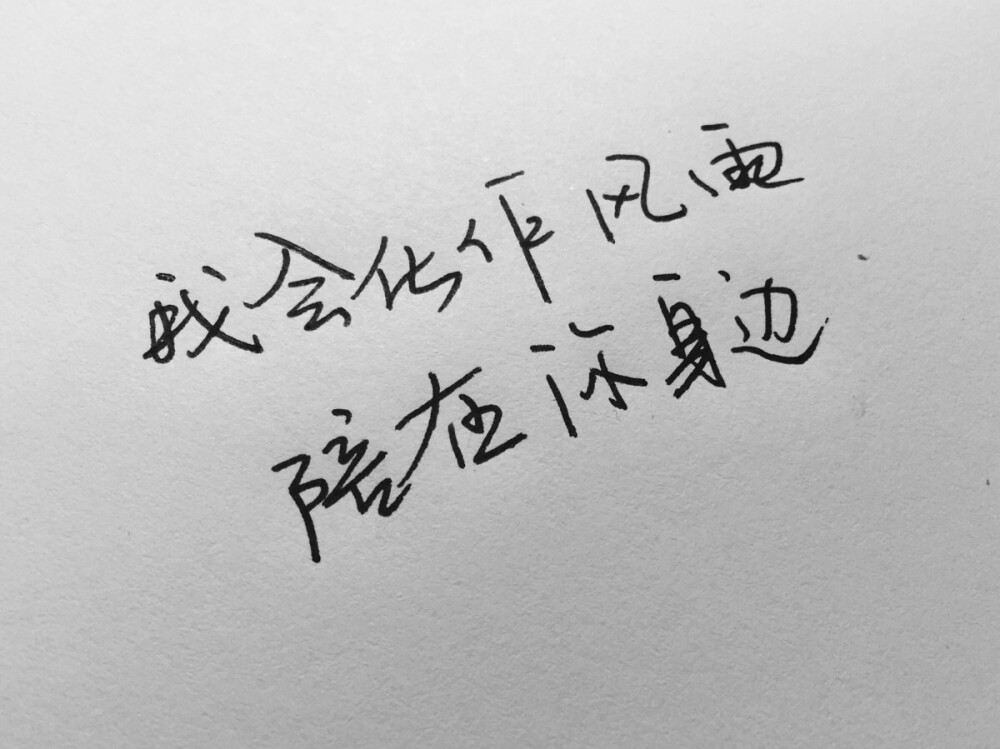 我会化作风雨
陪在你身边